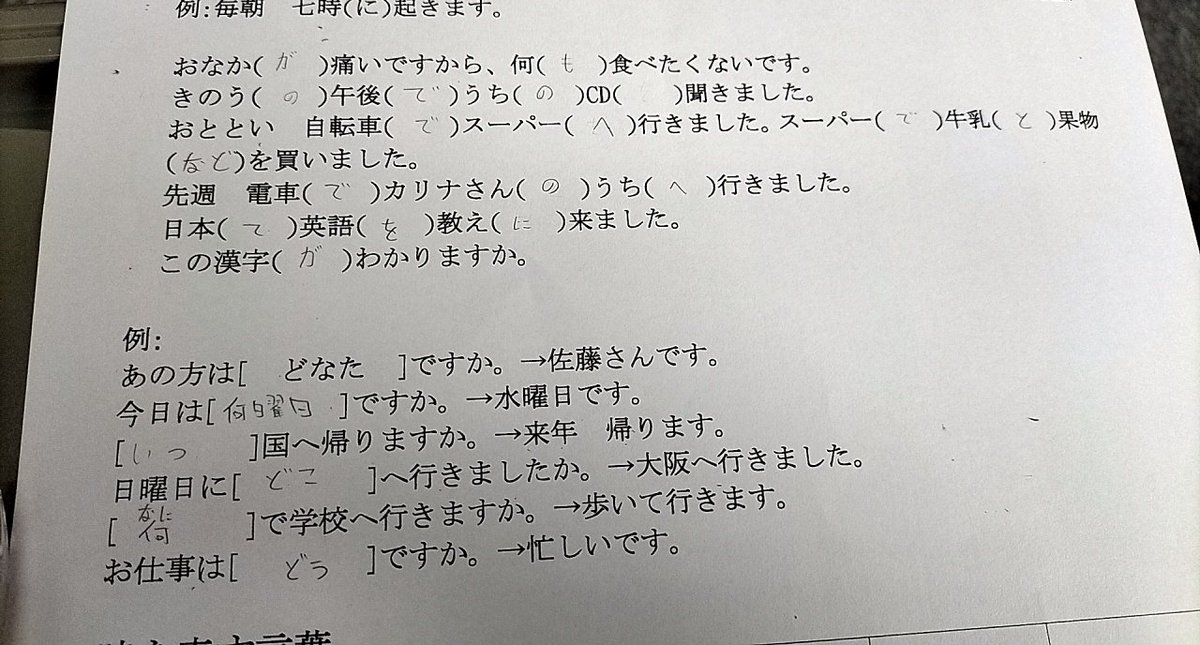 例:毎朝　七時(に)起きます。
おなか( が )痛いですから、何( も )食べたくないです。
きのう( の )午後( で )うち( の )CD(　　)聞きました。
おととい　自転車( で )スーパー( へ )行きました。スーパー( で )牛乳( と )果物
(など)を買いました。
先週　電車( で )カリナさん( の )うち( へ )行きました。
日本( て )英語( を )教え( に )来ました。
この漢字( が )わかりますか。
例:
あの方は[　どなた　]ですか。→佐藤さんです。
今日は[何日曜日]ですか。→水曜日です。
[いつ　　]国へ帰りますか。→来年　帰ります。
日曜日に[　どこ　]へ行きましたか。→大阪へ行きました。
なに
[　何　　]で学校へ行きますか。→歩いて行きます。
お仕事は[　どう　]ですか。→忙しいです。